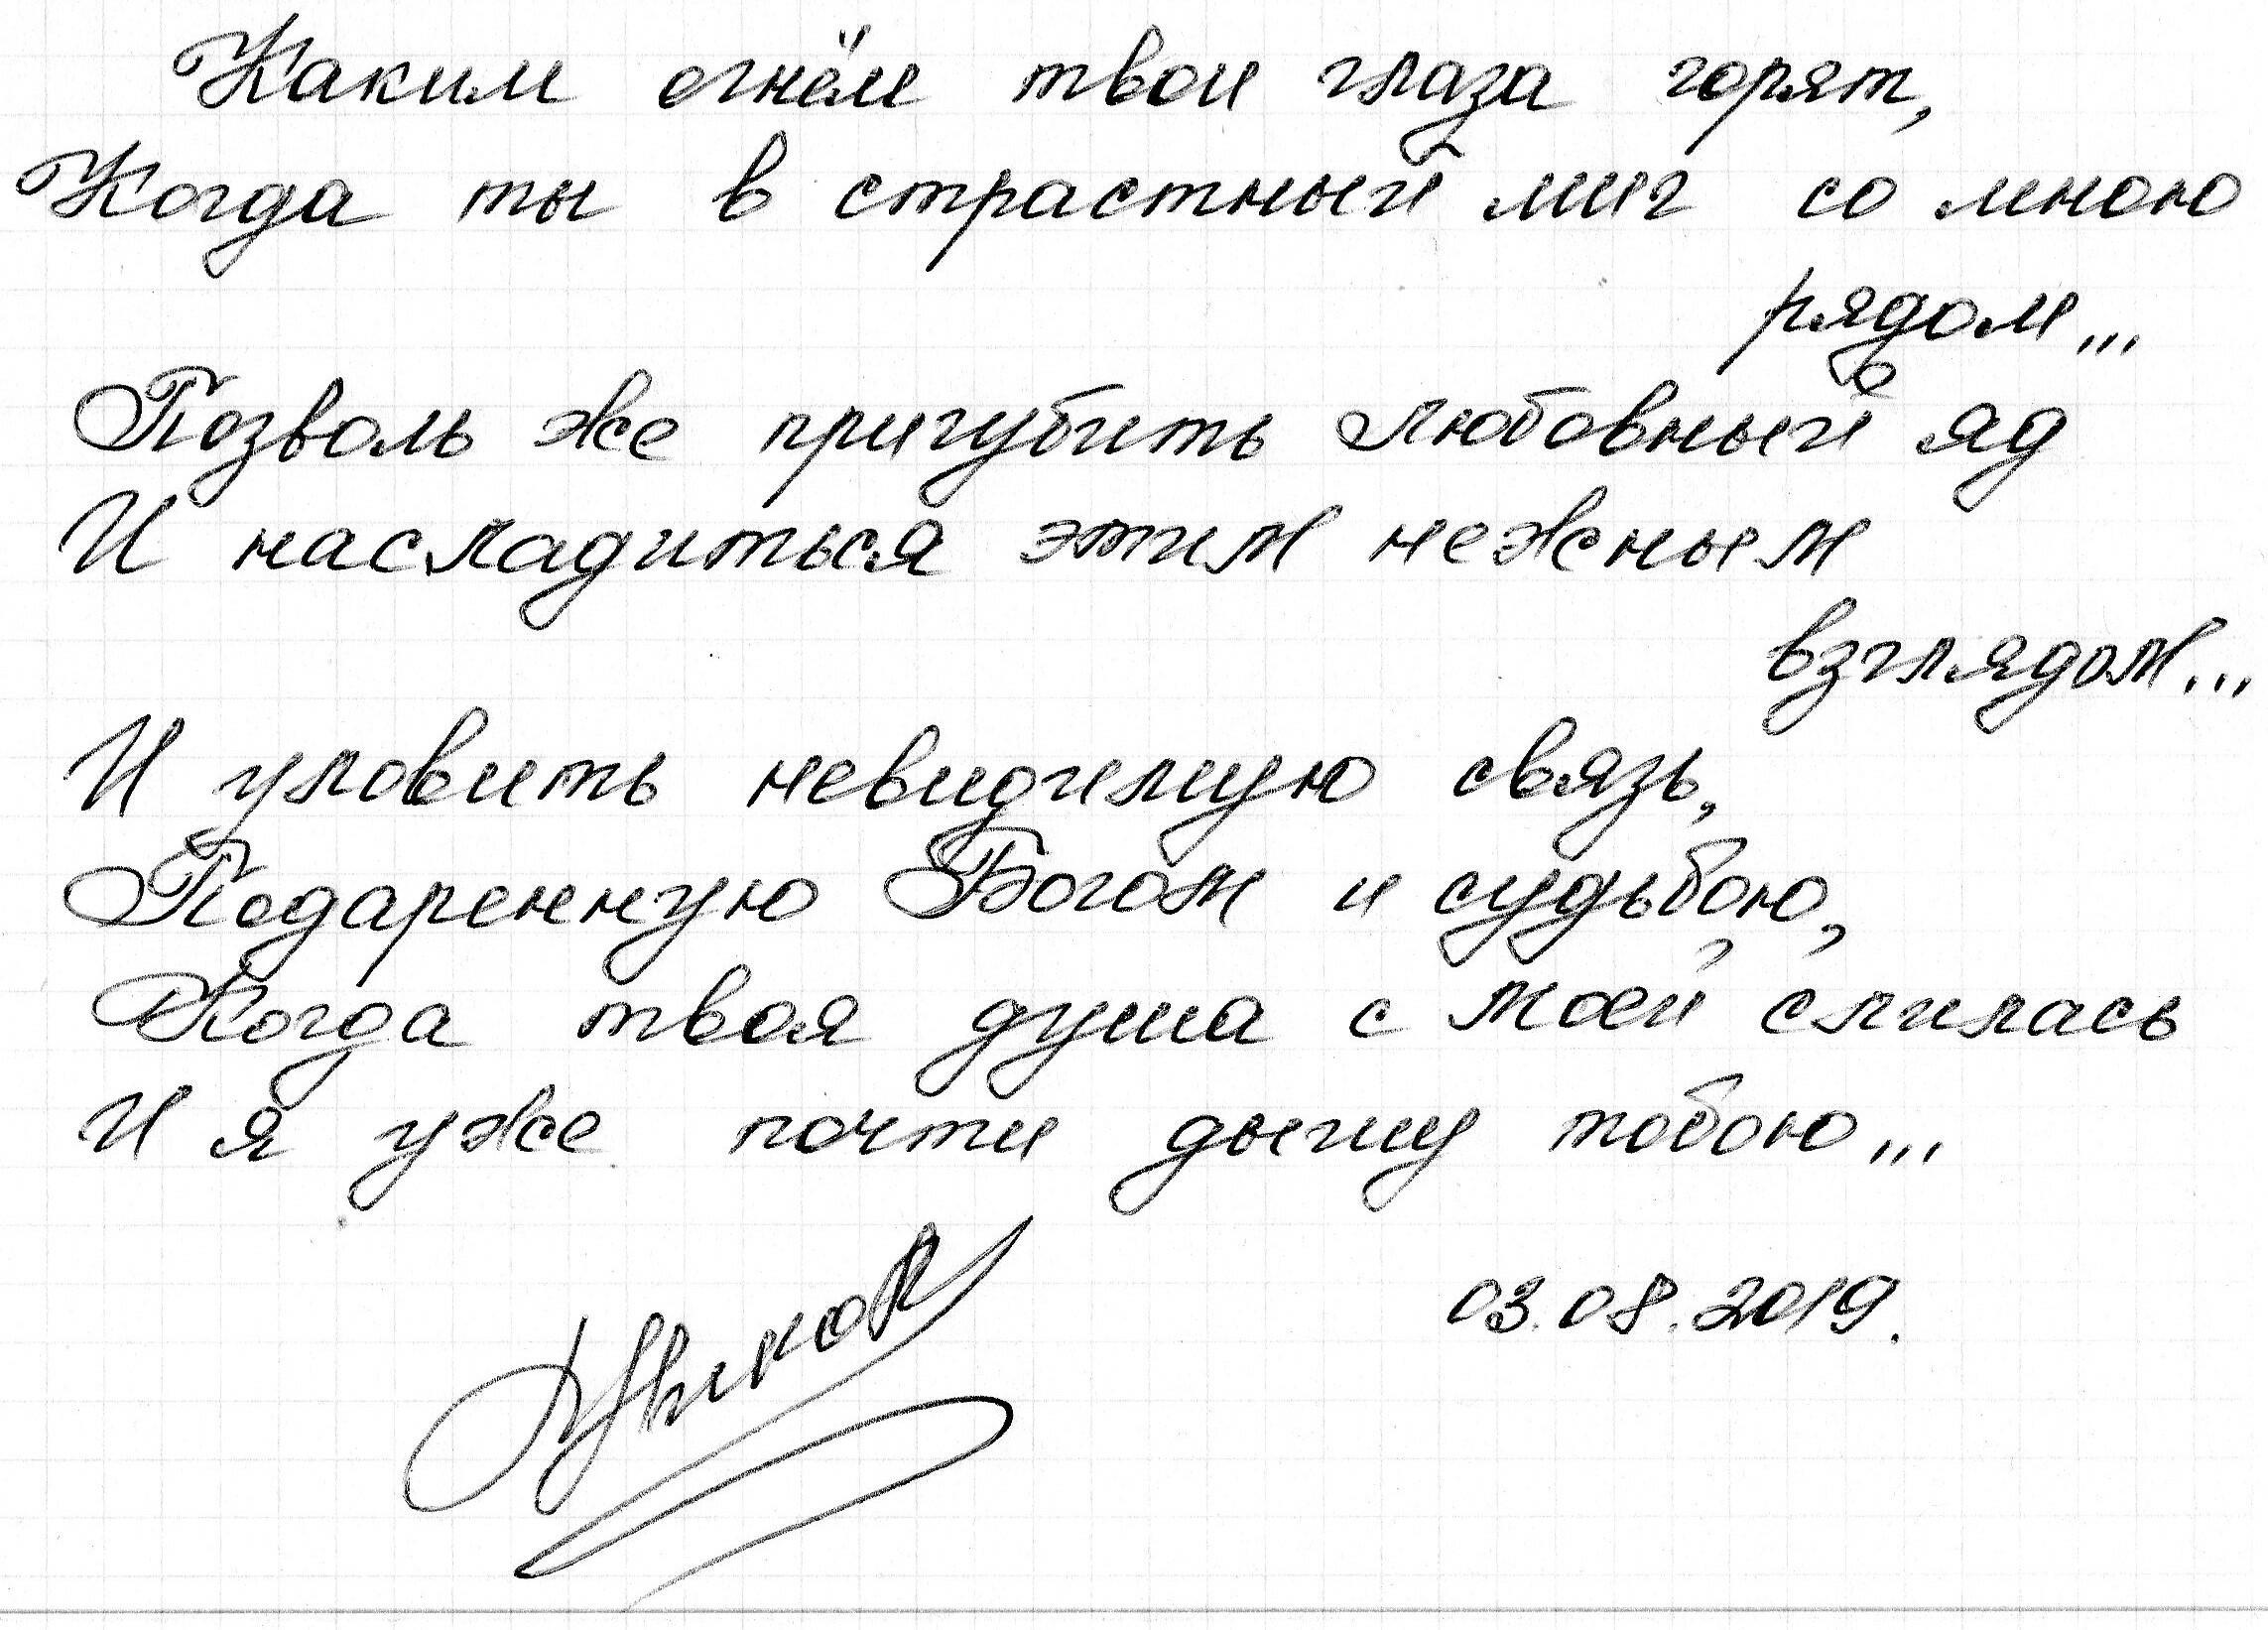 Каким огнём твои глаза горят,
Когда ты в страстный миг со мною
рядом...
Позволь же пригубить любовный яд
И насладиться этим нежным
взглядом...
И уловить невидимую связь,
Подаренную Богом и судьбою,
Когда твоя душа с моей слилась
И я уже почти дышу тобою...
03.08.2019.